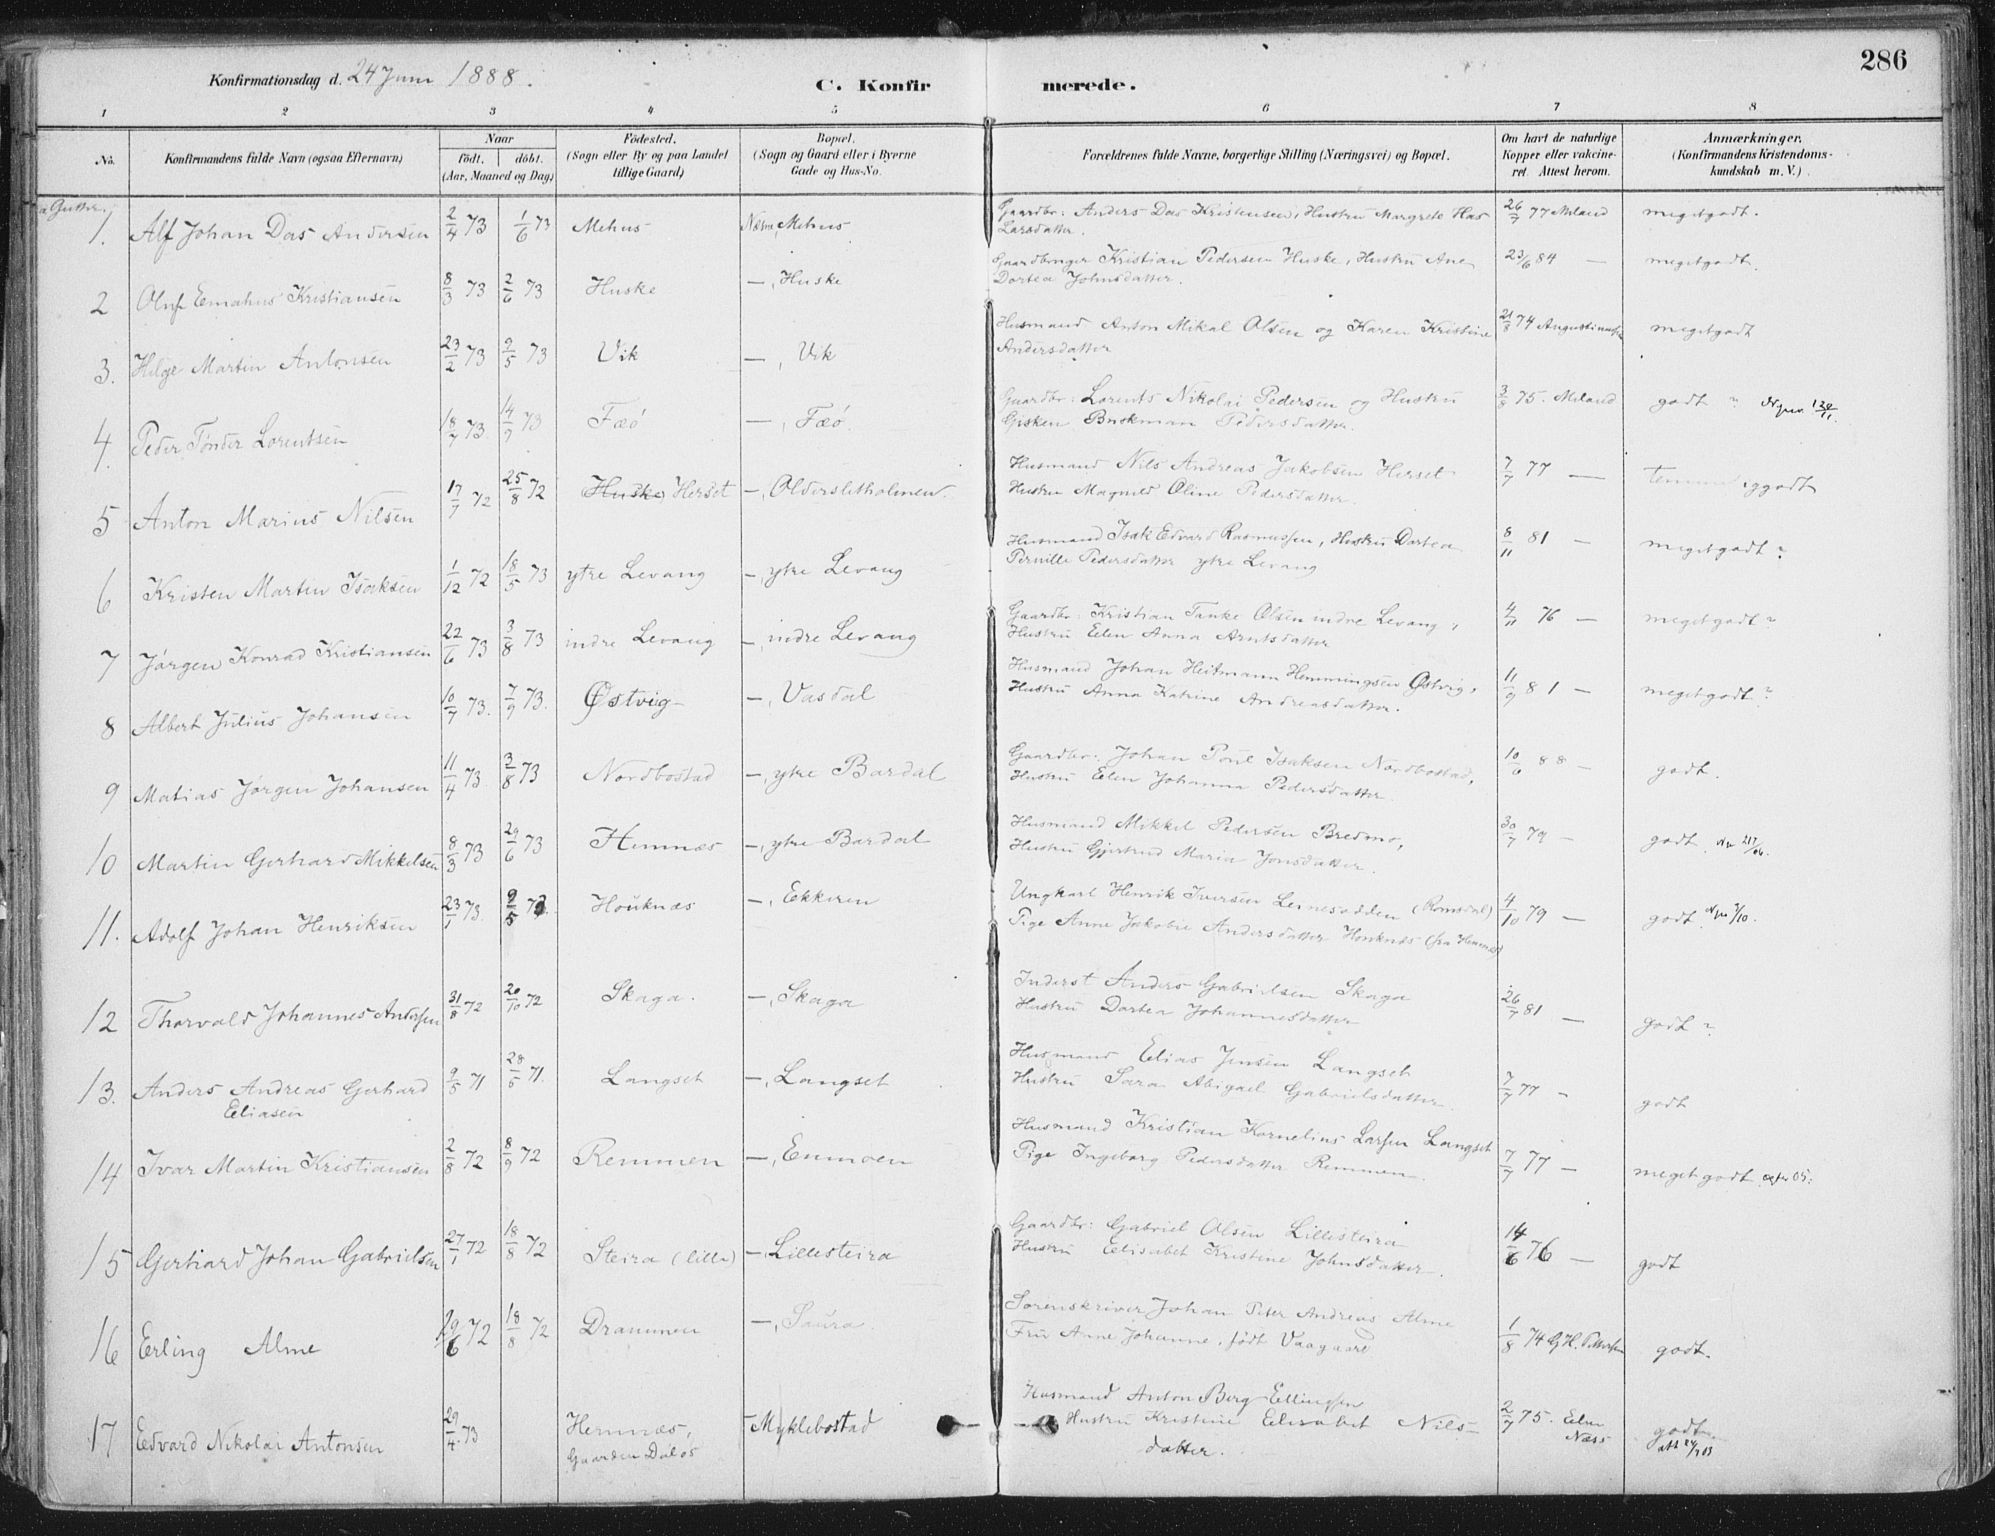 286
Konfirmationsdag d. 24 Juni 1888.
C. Konfir merede.
1 2 3 4 5 6 7 8
No.
Konfirmandens fulde Navn (ogsaa Efternavn)
Naar
födt. döbt.
(Aar, Maaned og Dag)
Födested.
(Sogn eller By og paa Landet
tillige Gaard)
Bopæl.
(Sogn og Gaard eller i Byerne
Gade og Hus-No.
Forældrenes fulde Navne, borgerlige Stilling (Næringsvei) og Bopæl.
Om havt de naturlige
Kopper eller vakcine-
ret Attest herom.
Anmærkninger.
(Konfirmandens Kristendoms-
kundskab m. V.)
a Gutter.
1. Alf Johan Das Andersen 2/4 73 1/6 73 Mehus Næsne, Mehus Gaardbr: Anders Das Kristensen, Hustru Margrete Has 26/7 77 Meland megetgodt.
Larsdatter.
2 Oluf Emahus Kristiansen 8/3 73 2/6 73 Huske —, Huske Gaardbruger Kristian Pedersen Huske, Hustru Ane 23/6 84 — megetgodt.
Dortea Johnsdatter.
3. Helge Martin Antonsen 23/2 73 9/5 73 Vik —, Vik Husmand Anton Mikal Olsen og Karen Kristine 21/8 74 megetgodt
Andersdatter
4. Peder Tönder Lorentsen 18/7 73. 14/9 73 Fæö —, Fæö. Gaardbr: Lorents Nikolai Pedersen og Hustru 3/8 75. Meland godt
Gisken Brokman Pedersdatter.
5 Anton Marius Nilsen 17/7 72 25/8 72 Huske Herset —, Oldersletholmen. Husmand Nils Andreas Jakobsen Herset 7/7 77 —
Hustru Magnild Oline Pedersdatter.
6 Kristen Martin Isaksen 1/12 72 18/5 73 ytre Levang —, ytre Levang Husmand Isak Edvard Rasmussen, Hustru Dortea 8/11 81 — megetgodt?
Pernille Pedersdatter ytre Levang
7 Jörgen Konrad Kristiansen 22/6 73 3/8 73 indre Levang —, indre Levang Gaardbr: Kristian Tanke Olsen indre Levang, 4/11 76 — megetgodt?
Hustru Elen Anna Arntsdatter
8 Albert Julius Johansen 10/7 73. 7/9 73. Østvig —, Vasdal Husmand Johan Heitmann Hemmingsen Østvig, 11/9 81 — megetgodt?
Hustru Anna Katrine Andreasdatter.
9 Matias Jörgen Johansen 11/4 73. 3/8 73 Nordbostad —, ytre Bardal Gaardbr: Johan Poul Isaksen Nordbostad, 10/6 88 — godt.
Hustru Elen Johanna Pedersdatter.
10 Martin Gerhard Mikkelsen 8/3 73 29/6 73 Hemnæs —, ytre Bardal Husmand Mikkel Pedersen Bredmo, 30/7 79 — godt.
Hustru Gjertrud Maria Jonsdatter.
11. Adolf Johan Henriksen 23/1 73. 2/5 73. Houknæs —, Ekkeren Ungkarl Henrik Iversen Leinesodden (Romsdal) 4/10 79 — godt.
Pige Anne Jakobie Andersdatter Houknæs (fra Hemnæs)
12 Thorvald Johannes Andersen 31/8 72 20/10 72 Skaga. —, Skaga Inderst Anders Gabrielsen Skaga 26/7 81 — godt?
Hustru Dortea Johannesdatter
13. Anders Andreas Gerhard 9/5 71 28/5 71. Langset —, Langset Husmand Elias Jensen Langset 7/7 77 — godt
Eliasen Hustru Sara Abigael Gabrielsdatter.
14 Ivar Martin Kristiansen 2/8 72 8/9 72 Remmen —, Enmoen Husmand Kristian Kornelius Larsen Langset 7/7 77 — megetgodt
Pige Ingeborg Pedersdatter Remmen.
15 Gerhard Johan Gabrielsen 27/1 72 18/8 72 Steira (lille) —, Lillesteira Gaardbr: Gabriel Olsen Lillesteira 14/6 76 — godt
Hustru Elisabet Kristine Johnsdatter.
16 Erling Alme 29/6 72 18/8 72 Drammen —, Saura Sorenskriver Johan Peter Andreas Alme 1/8 74 G H. godt.
Fru Anne Johanne, født Vaagaard
17 Edvard Nikolai Antonsen 29/4 73 Hemnæs, — Myklebostad Husmand Anton Berg Ellingsen 2/7 75. Elen godt
Gaarden Dalos Hustru Kristine Elisabet Nils- Næss
datter.